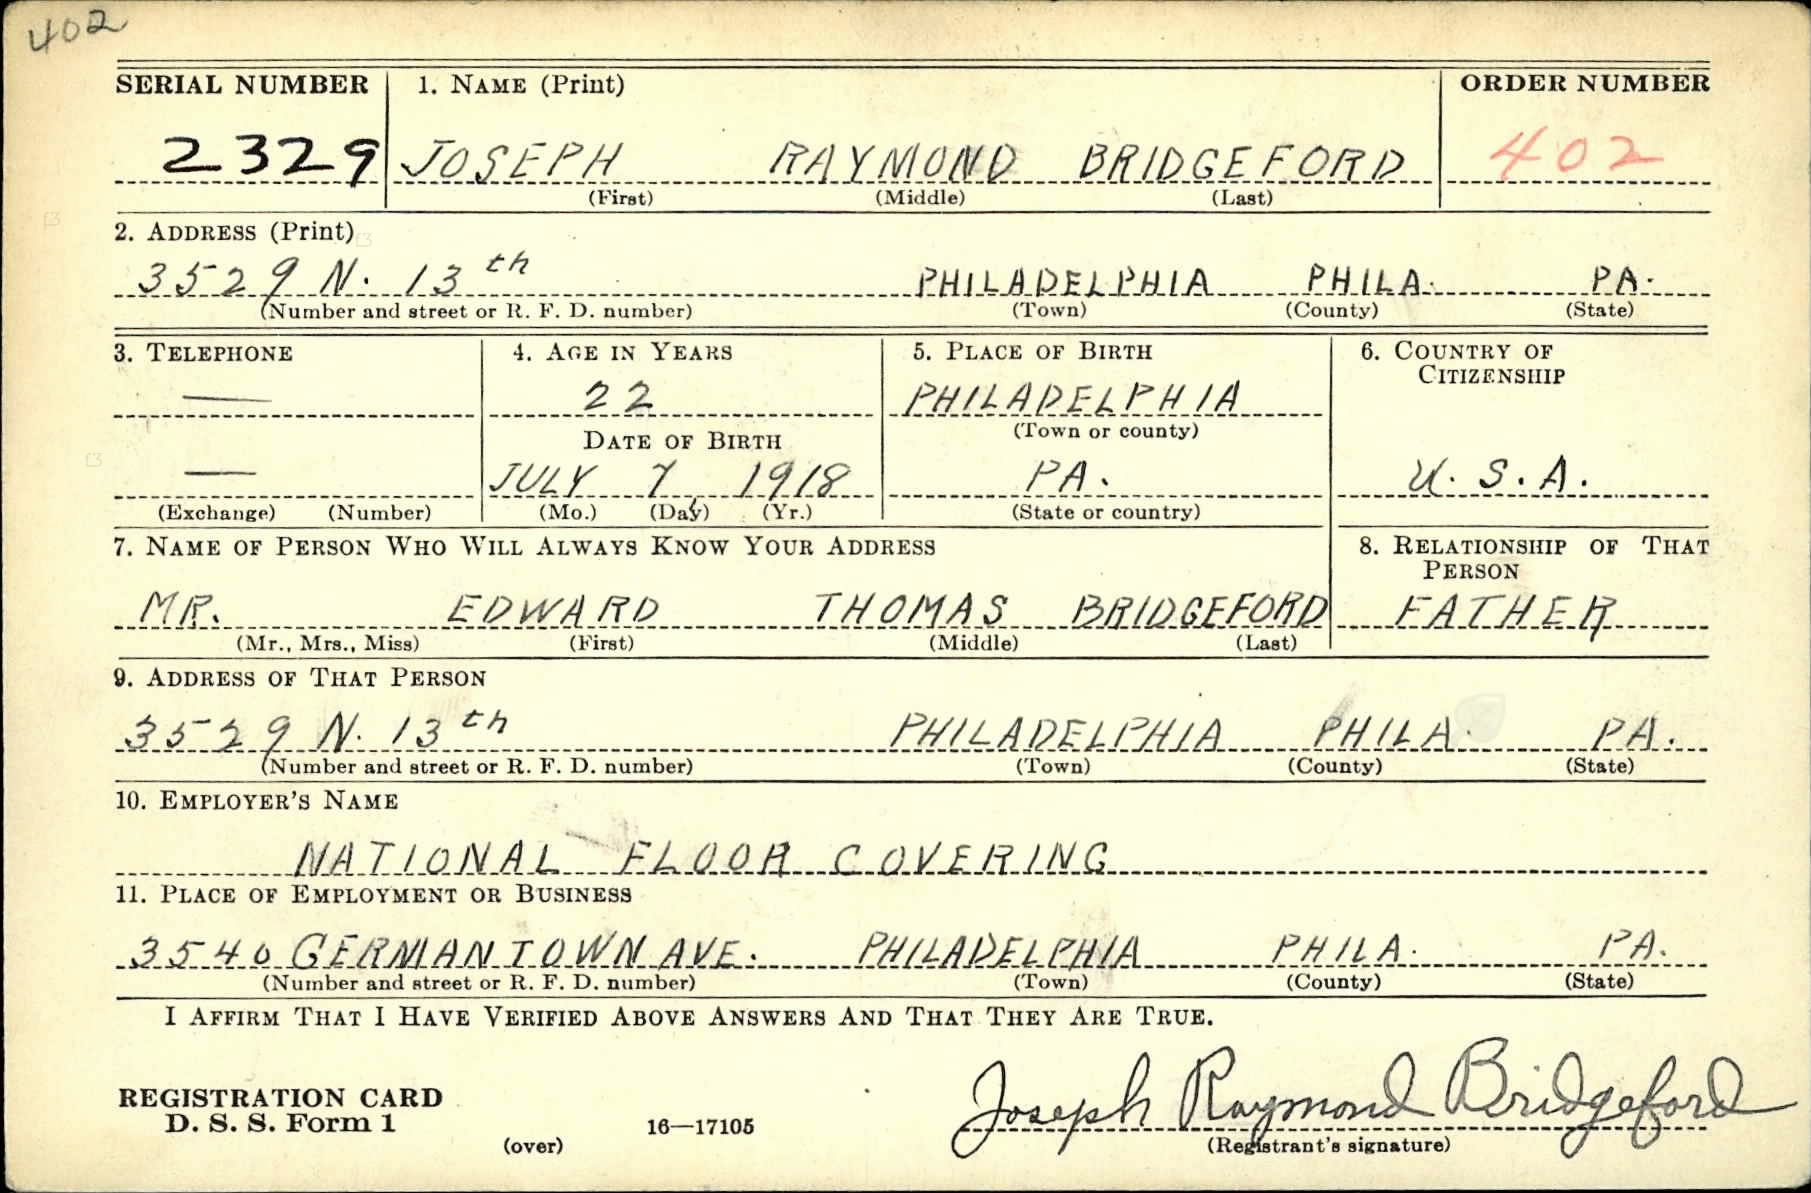 402
SERIAL NUMBER 1. NAME (Print) ORDER NUMBER
2329 JOSEPH RAYMOND BRIDGEFORD 402
(First) (Middle) (Last)
2. ADDRESS (Print)
3529 N. 13th PHILADELPHIA PHILA. PA.
(Number and street or R. F. D. number) (Town) (County) (State)
3. TELEPHONE 4. AGE IN YEARS 5. PLACE OF BIRTH 6. COUNTRY OF
CITIZENSHIP
— 22 PHILADELPHIA
(Town or county)
DATE OF BIRTH
— JULY 7, 1918 PA. U. S. A.
(Exchange) (Number) (Mo.) (Day) (Yr.) (State or country)
7. NAME OF PERSON WHO WILL ALWAYS KNOW YOUR ADDRESS 8. RELATIONSHIP OF THAT
PERSON
MR. EDWARD THOMAS BRIDGEFORD FATHER
(Mr., Mrs., Miss) (First) (Middle) (Last)
9. ADDRESS OF THAT PERSON
3529 N. 13th PHILADELPHIA PHILA. PA.
(Number and street or R. F. D. number) (Town) (County) (State)
10. EMPLOYER'S NAME
NATIONAL FLOOR COVERING
11. PLACE OF EMPLOYMENT OR BUSINESS
3540 GERMANTOWN AVE. PHILADELPHIA PHILA. PA.
(Number and street or R. F. D. number) (Town) (County) (State)
I AFFIRM THAT I HAVE VERIFIED ABOVE ANSWERS AND THAT THEY ARE TRUE.
REGISTRATION CARD
D. S. S. Form 1
(over) 16—17105
Joseph Raymond Bridgeford
(Registrant's signature)